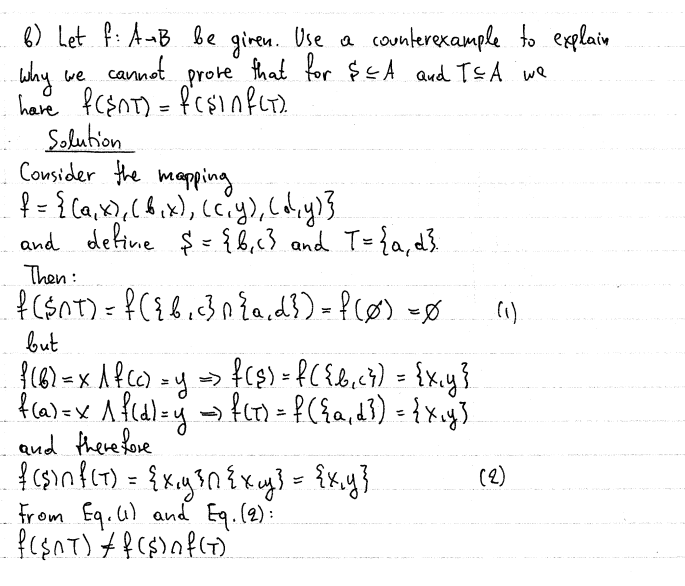 b) Let f: A→B be given. Use a counterexample to explain
why we cannot prove that for $ ⊆ A and T ⊆ A we
have f($∩T) = f($)∩f(T).
Solution
Consider the mapping
f = {(a,x), (b,x), (c,y), (d,y)}
and define $ = {b,c} and T = {a,d}.
Then:
f($∩T) = f({b,c}∩{a,d}) = f(∅) = ∅ (1)
but
f(b) = x ∧ f(c) = y ⇒ f($) = f({b,c}) = {x,y}
f(a) = x ∧ f(d) = y ⇒ f(T) = f({a,d}) = {x,y}
and therefore
f($)∩f(T) = {x,y}∩{x,y} = {x,y} (2)
From Eq.(1) and Eq.(2):
f($∩T) ≠ f($)∩f(T)